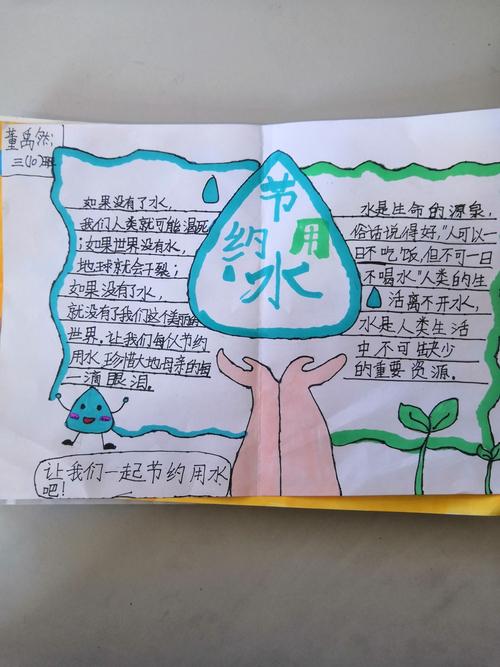 董禹然:
三(10)班
如果没有了水,
我们人类就可能渴死
;如果世界没有水,
地球就会干裂;
如果没有了水,
就没有了我们这个美丽的
世界,让我们每仪节约
用水,珍惜大地母亲的每
一滴眼泪。
节
约用
水
水是生命的源泉,
俗话说得好,"人可以一
日不吃饭,但不可一日
不喝水"人类的生
活离不开水,
水是人类生活
中不可缺少
的重要资源。
让我们一起节约用水
吧!